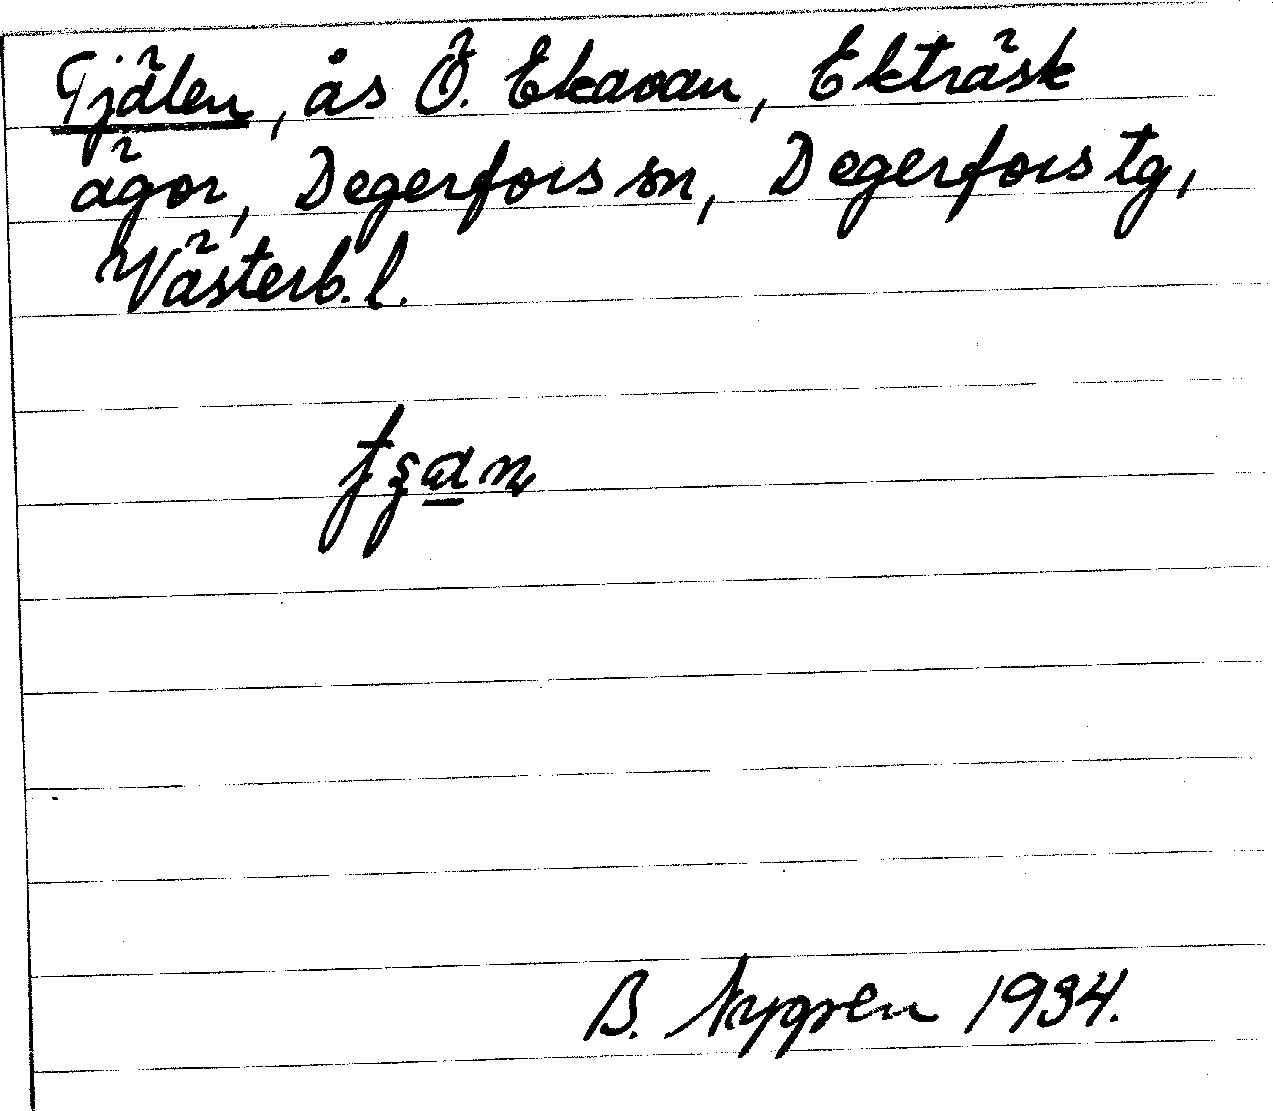 Tjälen, ås Ö. Ekaoan, Ekträsk
ägor, Degerfors sn, Degerfors tg,
Västerb. l.
B. Nygren 1934.